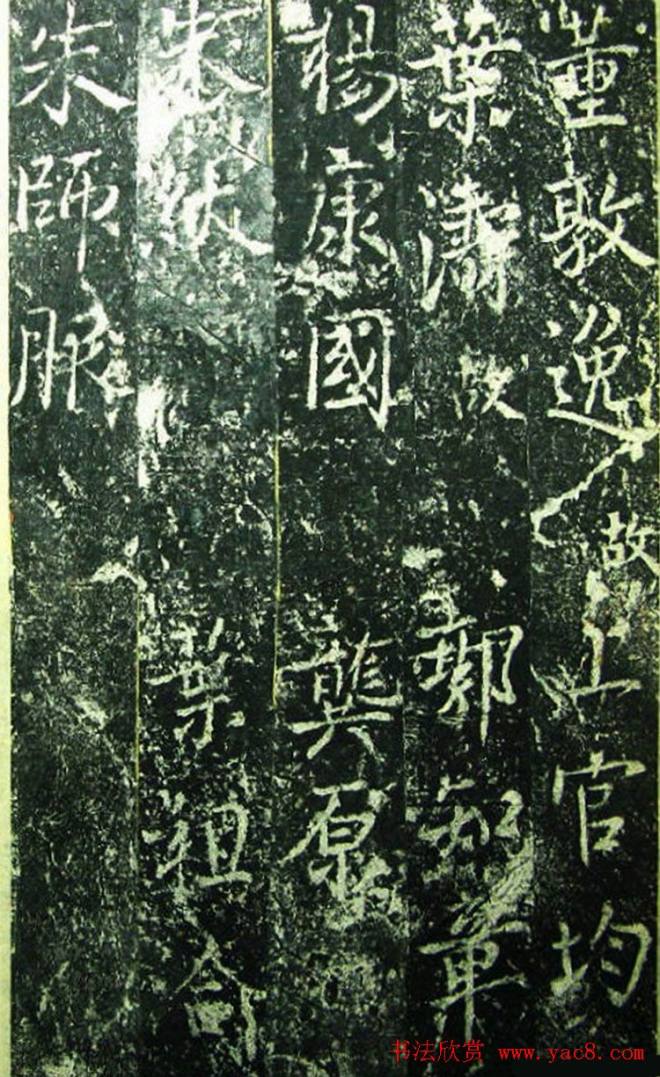 董敦逸故上官均
葉濤故郭知章
楊康國龔原
朱紱葉祖洽
朱師服
书法欣赏 www.yac8.com